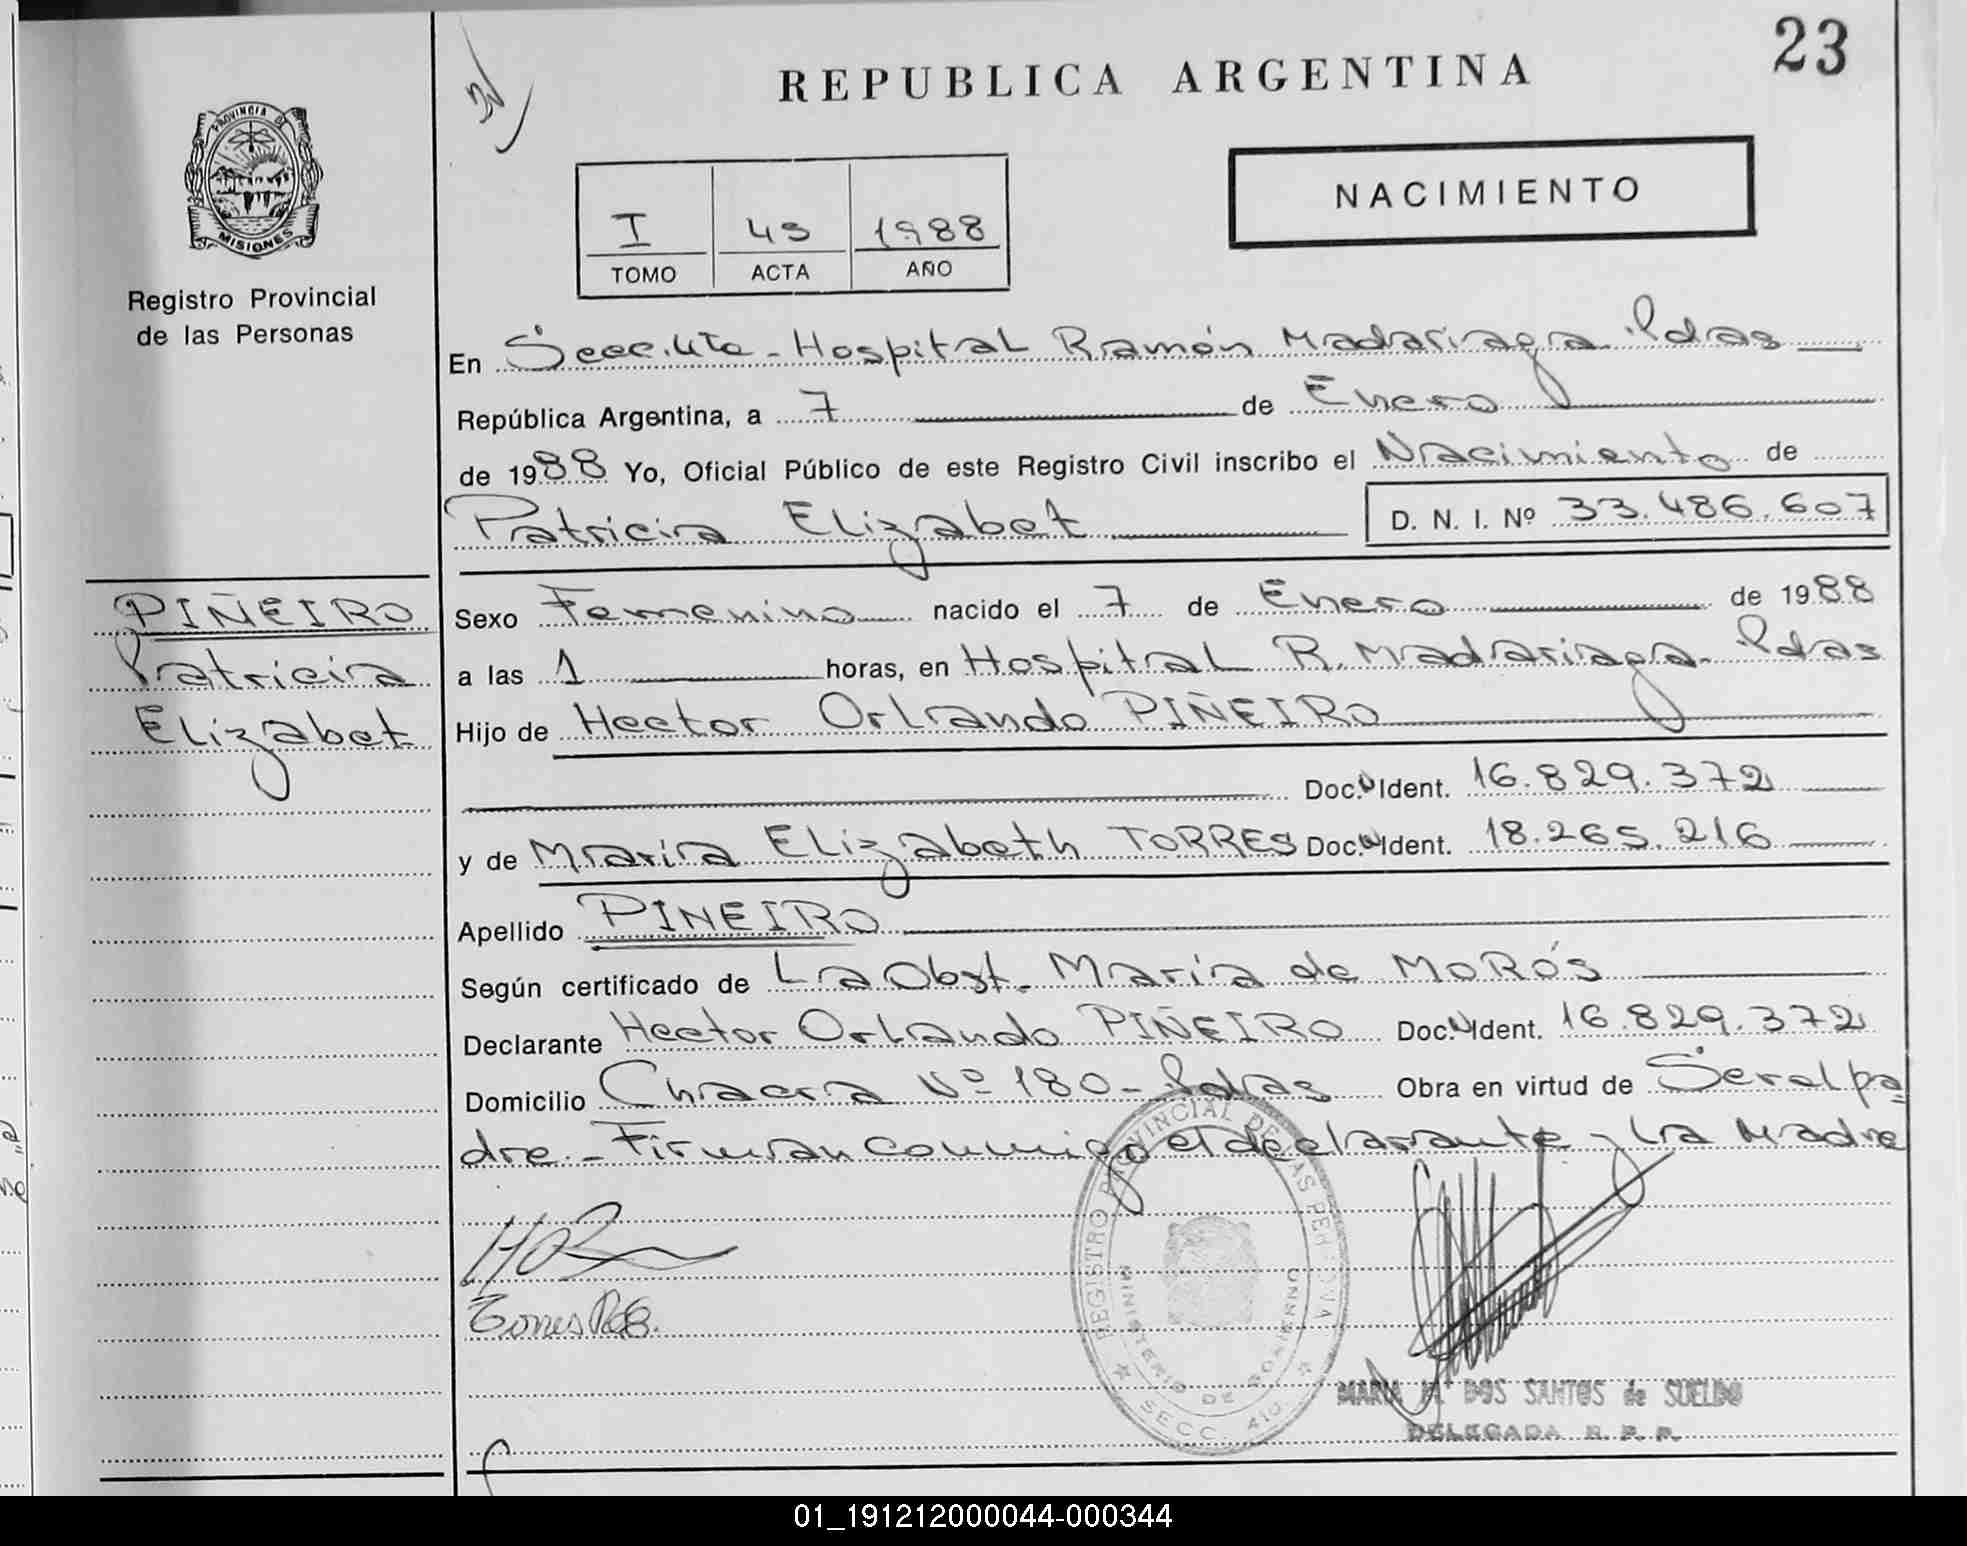 23
REPUBLICA ARGENTINA
NACIMIENTO
PROVINCIA DE
MISIONES
Registro Provincial
de las Personas
I 45 1988
TOMO ACTA AÑO
En Secc. 4ta - Hospital Ramón Madariaga Pdas
República Argentina, a 7 de Enero
de 1988 Yo, Oficial Público de este Registro Civil inscribo el Nacimiento de
Patricia Elizabet D. N. I. Nº 33.486.607
PIÑEIRO
Patricia
Elizabet
Sexo Femenino nacido el 7 de Enero de 1988
a las 1 horas, en Hospital R. Madariaga - Pdas
Hijo de Hector Orlando PIÑEIRO
Doc. Ident. 16.829.372
y de Maria Elizabeth TORRES Doc. Ident. 18.265.216
Apellido PIÑEIRO
Según certificado de La Obst. María de MoRós
Declarante Hector Orlando PIÑEIRO Doc. Ident. 16.829.372
Domicilio Chacra Nº 180 - Pdas Obra en virtud de Ser el pa
dre. - Firman conmigo el declarante y La Madre
REGISTRO PROVINCIAL DE LAS PERSONAS
MINISTERIO DE GOBIERNO
SECC. 4ta
MARIA M. DOS SANTOS de SUELDO
DELEGADA R. P. P.
01_191212000044-000344